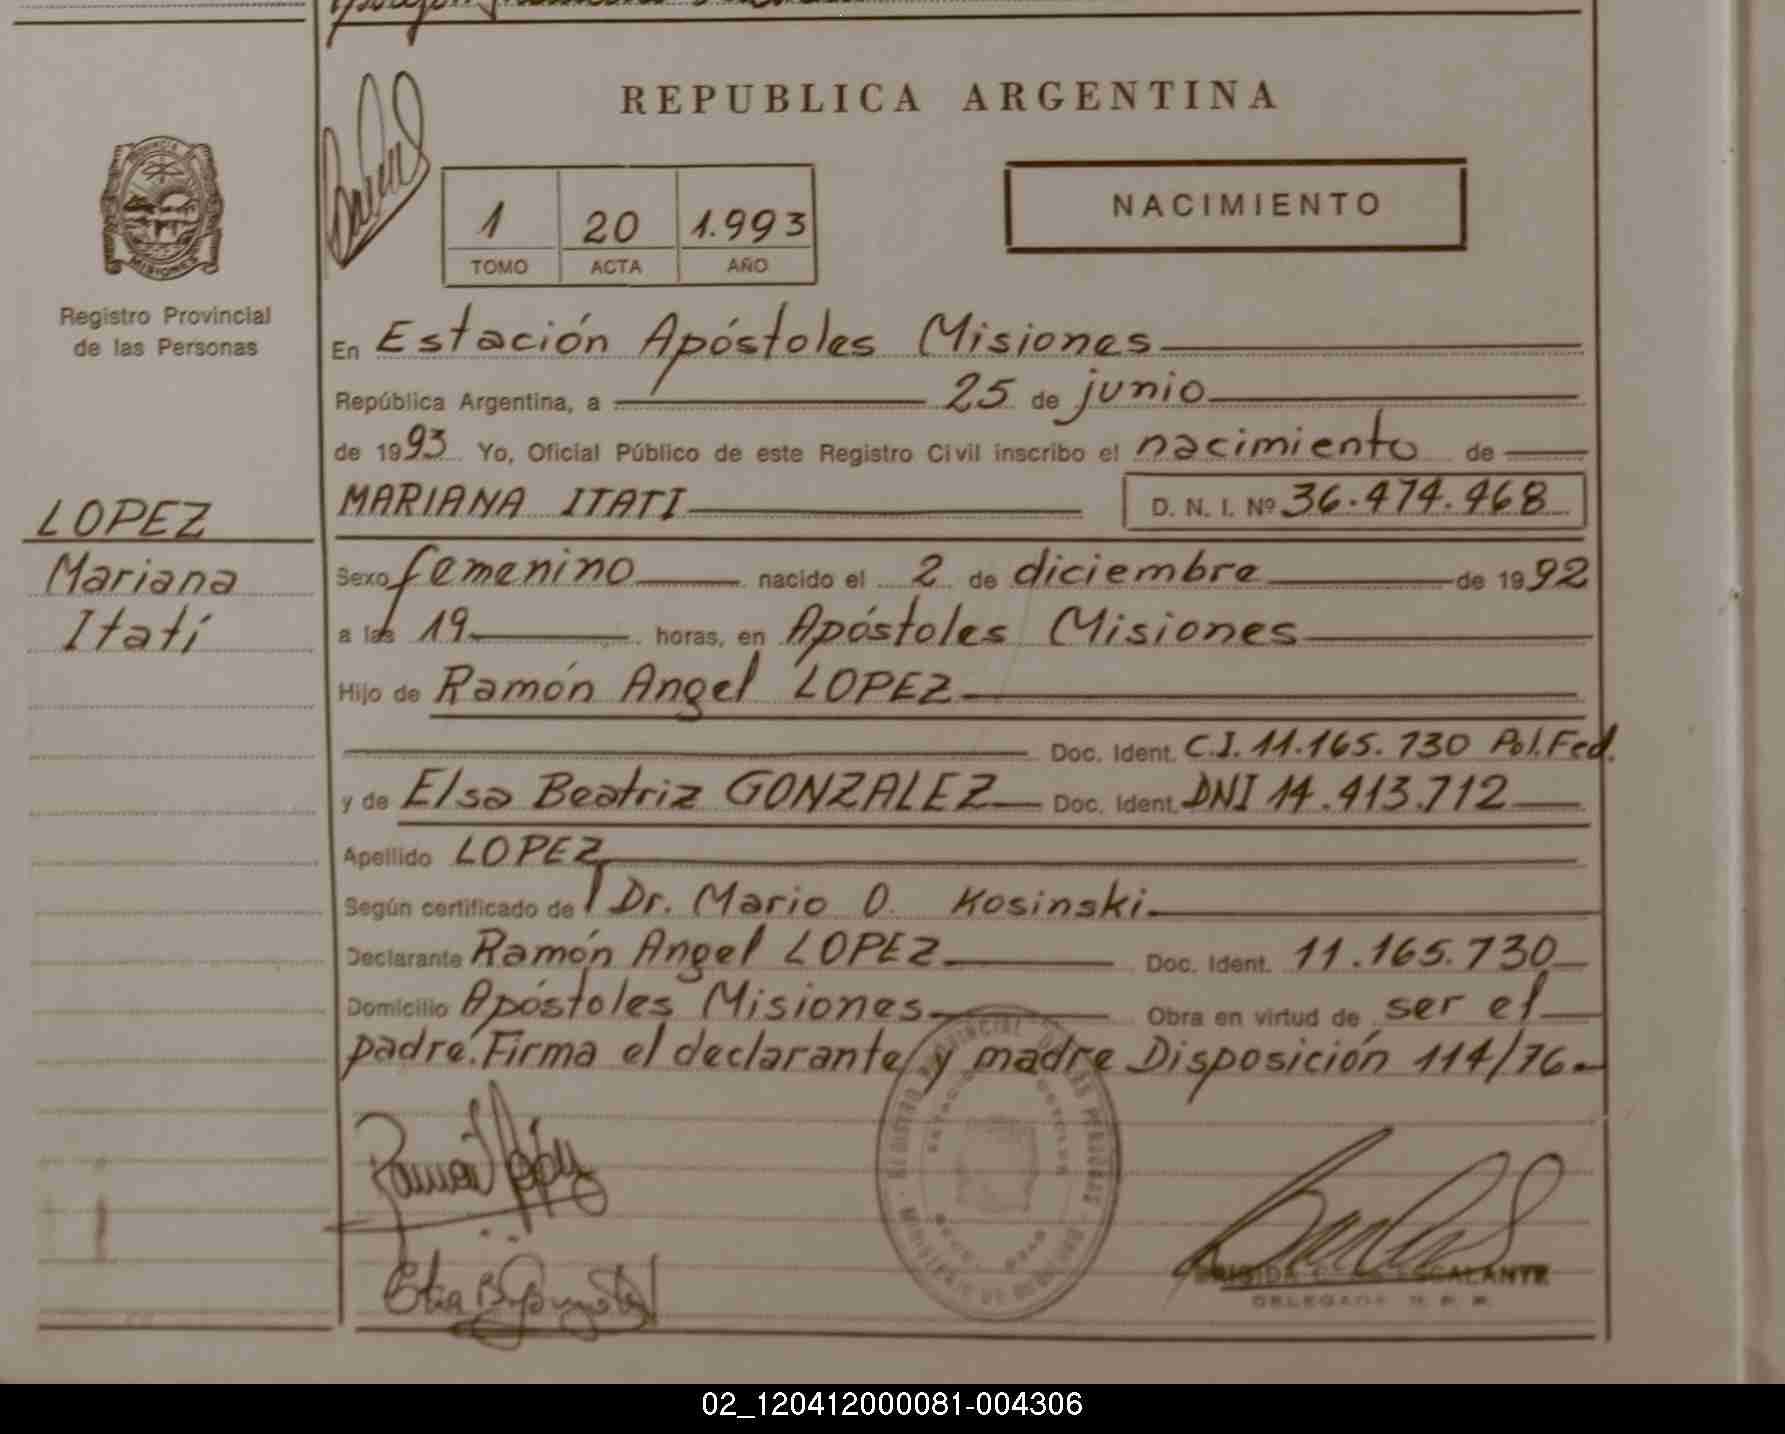 REPUBLICA ARGENTINA
PROVINCIA
MISIONES
Registro Provincial
de las Personas
LOPEZ
Mariana
Itatí
1 20 1.993
TOMO ACTA AÑO
NACIMIENTO
En Estación Apóstoles Misiones
República Argentina, a 25 de junio
de 1993 Yo, Oficial Público de este Registro Civil inscribo el nacimiento de
MARIANA ITATI D. N. I. Nº 36.474.468
Sexo femenino nacido el 2 de diciembre de 1992
a las 19 horas, en Apóstoles Misiones
Hijo de Ramón Angel LOPEZ
Doc. Ident. C.I. 11.165.730 Pol. Fed.
y de Elsa Beatriz GONZALEZ Doc. Ident. DNI 14.413.712
Apellido LOPEZ
Según certificado de Dr. Mario O. Kosinski
Declarante Ramón Angel LOPEZ Doc. Ident. 11.165.730
Domicilio Apóstoles Misiones Obra en virtud de ser el
padre. Firma el declarante y madre Disposición 114/76.
REGISTRO PROVINCIAL DE LAS PERSONAS
MINISTERIO DE GOBIERNO
Ramon Lopez
ESCALANTE
DELEGADA R. P. P.
02_120412000081-004306